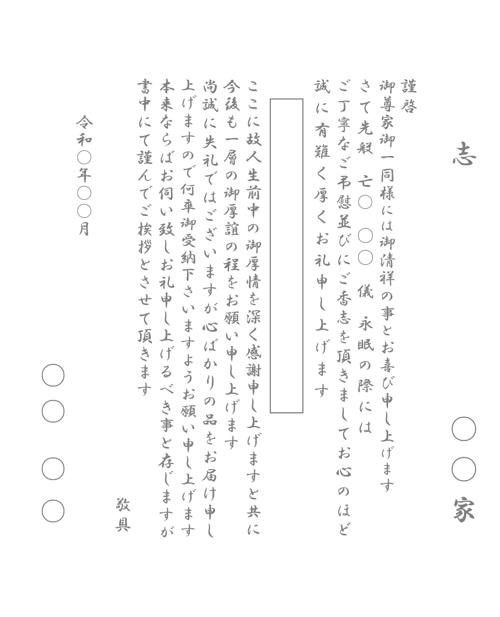 志
〇〇家
謹啓
御尊家御一同様には御清祥の事とお喜び申し上げます
さて先般 亡〇 〇〇 儀 永眠の際には
ご丁寧なご弔慰並びにご香志を頂きましてお心のほど
誠に有難く厚くお礼申し上げます
ここに故人生前中の御厚情を深く感謝申し上げますと共に
今後も一層の御厚誼の程をお願い申し上げます
尚誠に失礼ではございますが心ばかりの品をお届け申し
上げますので何卒御受納下さいますようお願い申し上げます
本来ならばお伺い致しお礼申し上げるべき事と存じますが
書中にて謹んでご挨拶とさせて頂きます
敬具
令和〇年〇〇月
〇〇 〇 〇